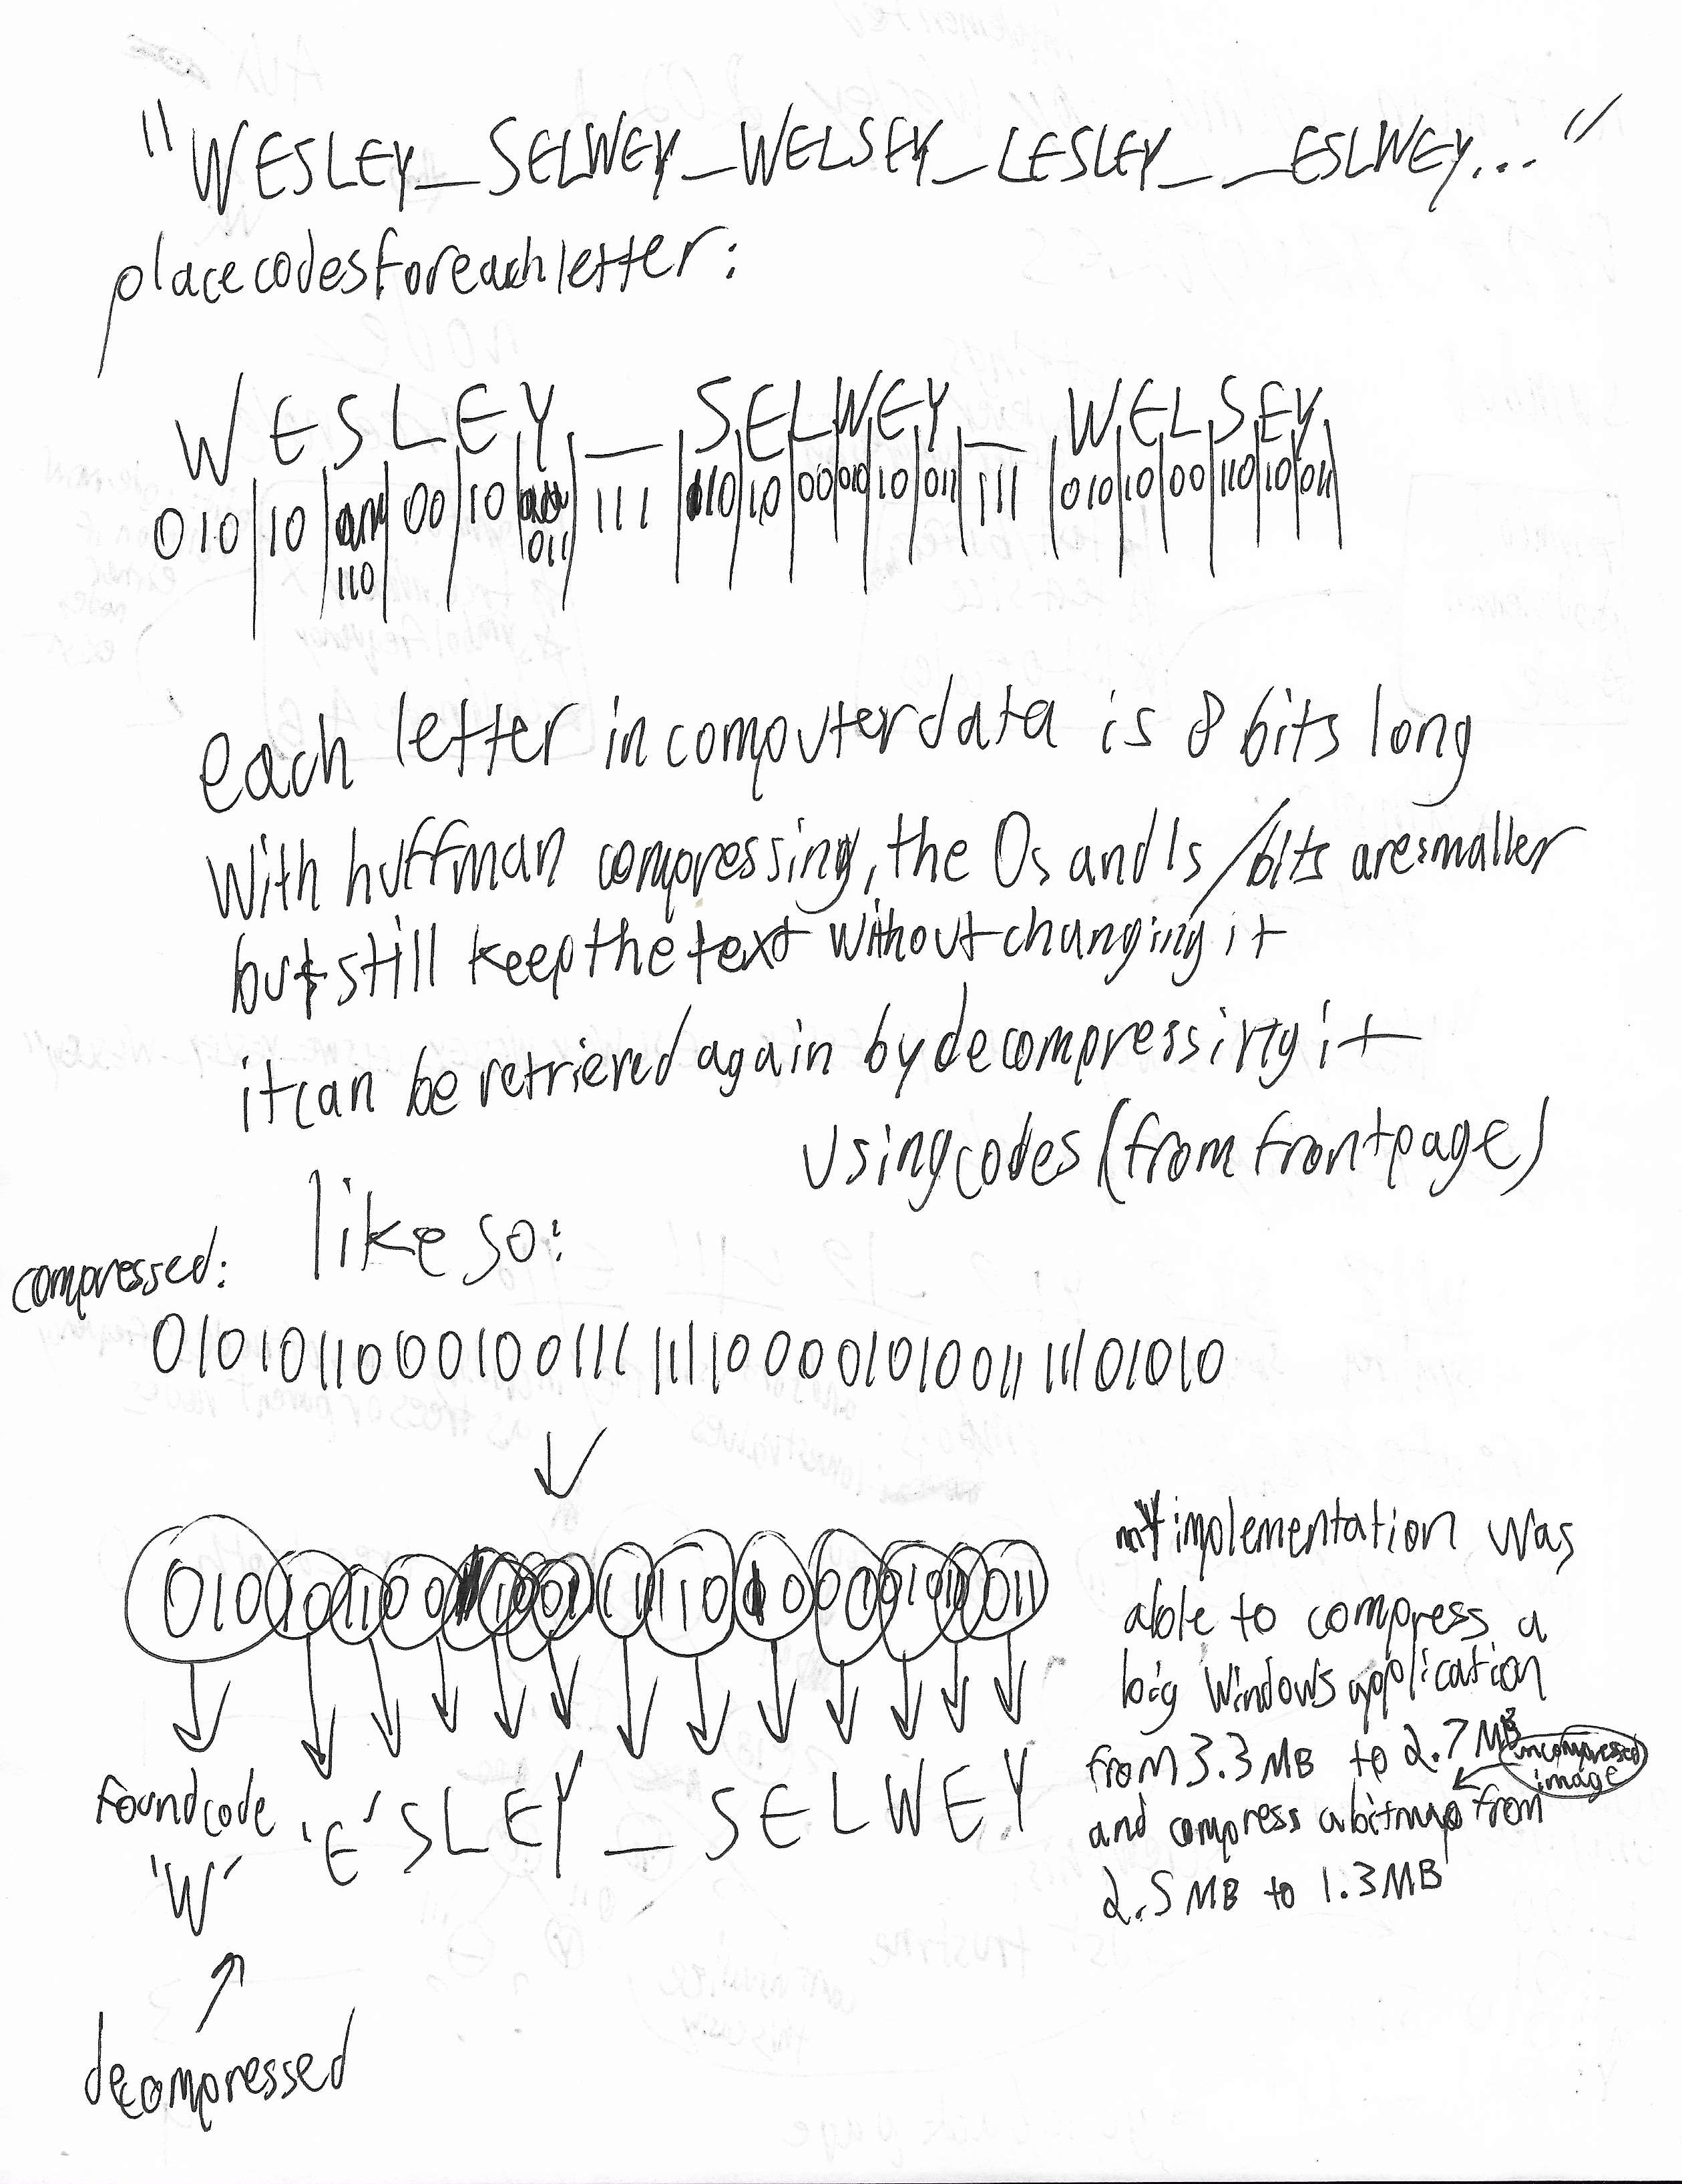 "WESLEY_SELWEY_WELSEY_LESLEY__ESLWEY..."
place codes for each letter:
W E S L E Y _ S E L W E Y _ W E L S E Y
010|10| |00|10| |111|110|10|00|010|10|011|111|010|10|00|110|10|011
110 011
each letter in computer data is 8 bits long
With huffman compressing, the 0s and 1s /bits are smaller
but still keep the text without changing it
it can be retriered again by decompressing it
using codes (from front page)
like so:
compressed:
010101100010011111110000101001111101010
010 10 110 00 10 011 111 110 10 00 010 10 011
found code 'E' S L E Y _ S E L W E Y
'W'
decompressed
my implementation was
able to compress a
big Windows application
from 3.3 MB to 2.7 MB
uncompressed
image
and compress a bitmap from
2.5 MB to 1.3 MB